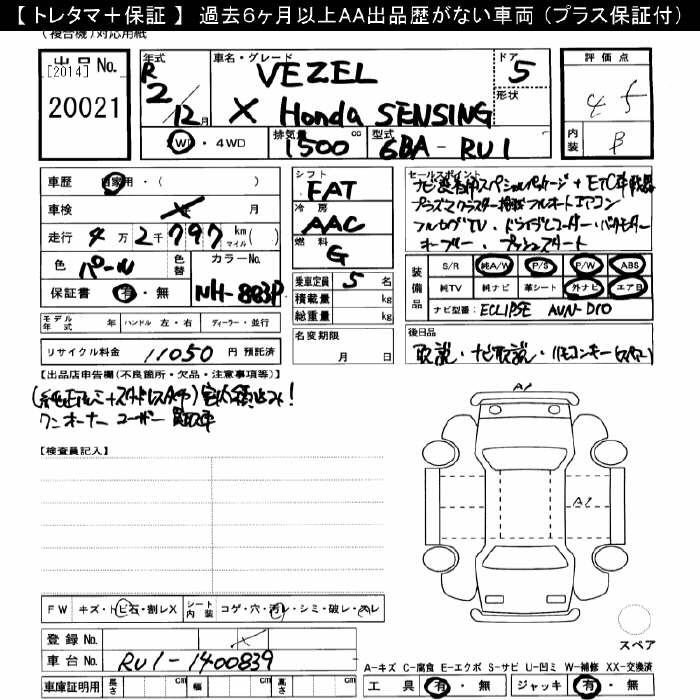 【 トレタマ＋保証 】 過去６ヶ月以上ＡＡ出品歴がない車両 （プラス保証付）
(複合機)対応用紙
出品 No.
[2014]
20021
年式 R 2/12月
車名・グレード VEZEL
X Honda SENSING
ドア 5
形状
評価点 4.5
内装 B
2WD・4WD
排気量 1500 cc
型式 6BA-RU1
車歴 自家用・( )
車検 年 月
走行 4万2千797 km マイル( )
色 パール
色替
カラーNo. NH-883P
保証書 有・無
シフト FAT
冷房 AAC
燃料 G
乗車定員 5 名
積載量 kg
総重量 kg
セールスポイント
ナビ装着用スペシャルパッケージ+ETC車載器
プラズマクラスター搭載フルオートエアコン
フルセグTV・ドライブレコーダー・バックモニター
オーブン・プッシュスタート
装備品
S/R 純A/W P/S P/W ABS
純TV 純ナビ 革シート 外ナビ エアB
ナビ型番: ECLIPSE AVN-D10
モデル年式 年 ハンドル 左・右 ディーラー・並行
リサイクル料金 11050 円 預託済
名変期限 月 日
後日品
取説・ナビ取説・リモコンキー(スペアー)
【出品店申告欄(不良箇所・欠品・注意事項等)】
(純正アルミ+スタッドレスタイヤ)
ワンオーナー ユーザー 買取車
【検査員記入】
A1
A1
FW キズ・トビ石・割レX シート内装 コゲ・穴・汚レ・シミ・破レ・スレ
登録 No.
車台 No. RU1-1400839
車庫証明用 長さ cm 幅 cm 高さ cm
スペア
A-キズ C-腐食 E-エクボ S-サビ U-凹ミ W-補修 XX-交換済
工具 有・無 ジャッキ 有・無